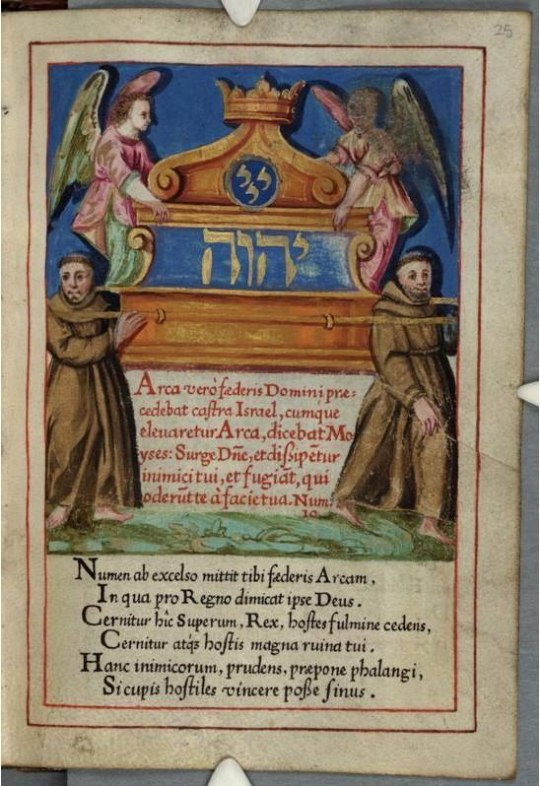 25
ייי
יהוה
Arca verò fæderis Domini præ=
cedebat caſtra Israel, cumque
eleuaretur Arca, dicebat Mo
yses: Surge Dñe, et dißipẽtur
inimici tui, et fugiãt, qui
oderũt te à facie tua. Num:
10.
Numen ab excelso mittit tibi fæderis Arcam,
In qua pro Regno dimicat ipse Deus.
Cernitur hîc Superum, Rex, hoſtes fulmine cedens,
Cernitur atq́s hoſtis magna ruina tui.
Hanc inimicorum, prudens, præpone phalangi,
Si cupis hoſtiles vincere poße ſinus.